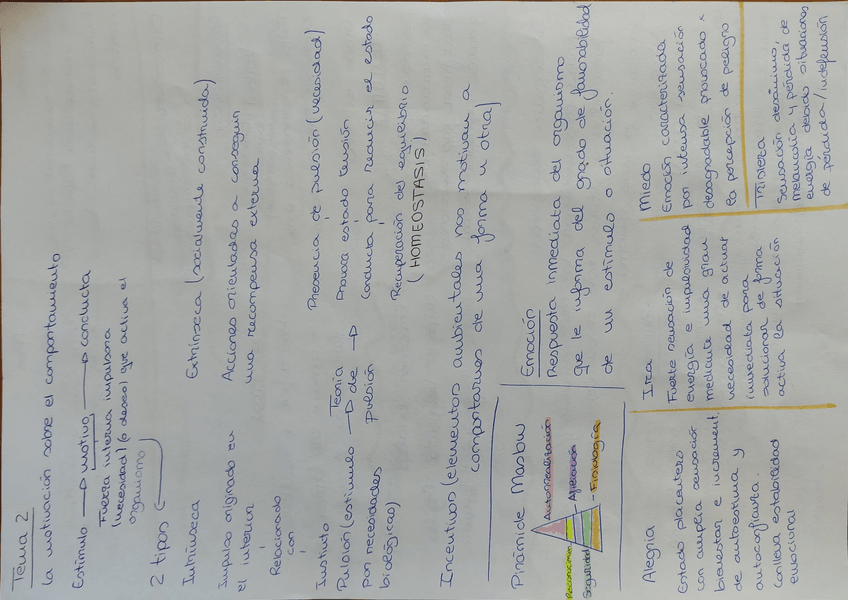 Tema 2
la motivación sobre el comportamiento
Estímulo → motivo → conducta
Fuerza interna impulsora
(necesidad) (o deseo) que activa el
organismo)
2 tipos
Intrínseca
Impulso originado en
el interior
Relacionado
con
Instinto
Pulsión (estímulo
por necesidades
biológicas)
Extrínseca (socialmente construida)
Acciones orientadas a conseguir
una recompensa externa
→ Teoría
de
pulsión
→
Presencia de pulsión (necesidad)
Provoca estado tensión
Conducta para reducir el estado
Recuperación del equilibrio
(HOMEOSTASIS)
Incentivos (elementos ambientales nos motivan a
comportarnos de una forma u otra)
Pirámide Maslow
Autorrealización
Reconocimien
Afiliación
Seguridad
Fisiología
Emoción
Respuesta inmediata del organismo
que le informa del grado de favorabilidad
de un estímulo o situación.
Alegría
Estado placentero
con amplia sensación
bienestar e increment.
de autoestima y
autoconfianza.
Conlleva estabilidad
emocional
Ira
Fuerte sensación de
energía e impulsividad
mediante una gran
necesidad de actuar
inmediata para
solucionar de forma
activa la situación
Miedo
Emoción caracterizada
por intensa sensación
desagradable provocado x
la percepción de peligro
Tristeza
Sensación desánimo,
melancolía y pérdida de
energía debido situaciones
de pérdida/indefensión